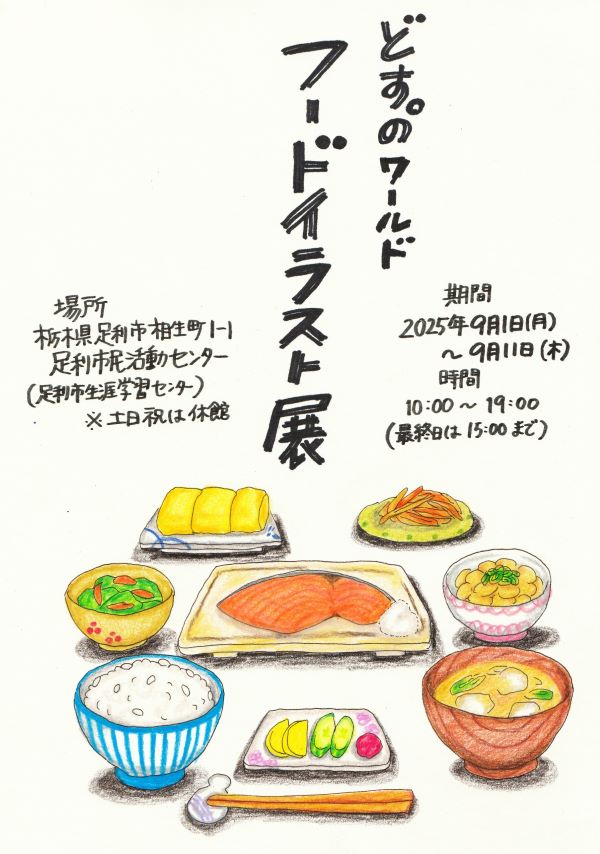 どす。のワールド
フードイラスト展
期間
2025年9月1日(月)
〜9月11日(木)
時間
10:00〜19:00
(最終日は15:00まで)
場所
栃木県足利市相生町1-1
足利市民活動センター
(足利市生涯学習センター)
※土日祝は休館